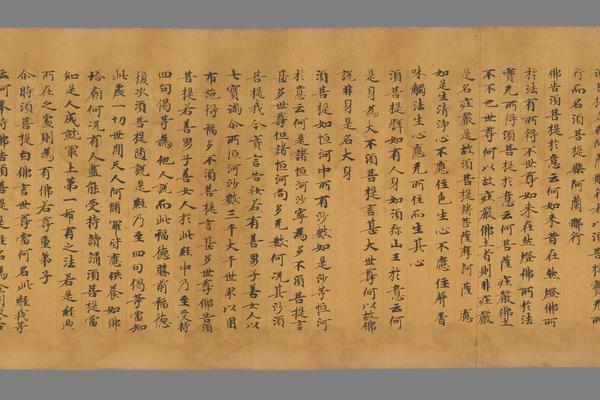 行而名須菩提樂阿蘭那行
佛告須菩提於意云何如來昔在然燈佛所
於法有所得不世尊如來在然燈佛所於法
實无所得須菩提於意云何菩薩莊嚴佛土
不不也世尊何以故莊嚴佛土者則非莊嚴
是名莊嚴是故須菩提諸菩薩摩訶薩應
如是生清淨心不應住色生心不應住聲香
味觸法生心應无所住而生其心
須菩提譬如有人身如須弥山王於意云何
是身為大不須菩提言甚大世尊何以故佛
說非身是名大身
須菩提如恒河中所有沙數如是沙等恒河
於意云何是諸恒河沙寧為多不須菩提言
甚多世尊但諸恒河尚多无數何況其沙須
菩提我今實言告汝若有善男子善女人以
七寶滿尒所恒河沙數三千大千世界以用
布施得福多不須菩提言甚多世尊佛告須
菩提若善男子善女人於此經中乃至受持
四句偈等為他人說而此福德勝前福德
復次須菩提隨說是經乃至四句偈等當知
此處一切世間天人阿脩羅皆應供養如佛
塔廟何況有人盡能受持讀誦須菩提當
知是人成就最上第一希有之法若是經典
所在之處則為有佛若尊重弟子
尒時須菩提白佛言世尊當何名此經我等
云何奉持佛告須菩提是經名為金剛般